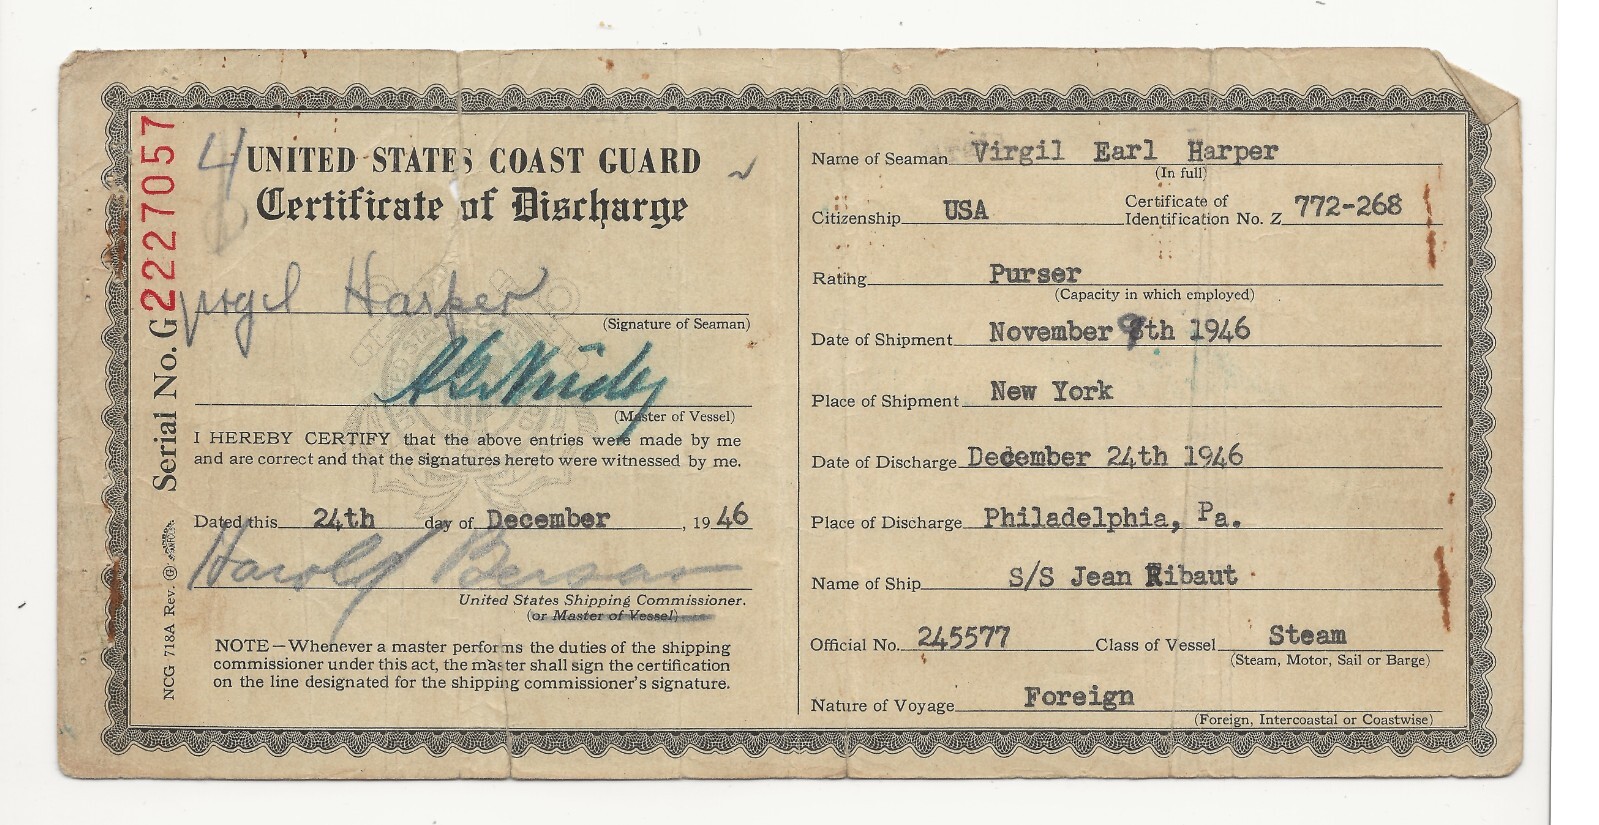 4
UNITED STATES COAST GUARD
Certificate of Discharge
Serial No. G 2227057
Virgil Harper
(Signature of Seaman)
(Master of Vessel)
I HEREBY CERTIFY that the above entries were made by me
and are correct and that the signatures hereto were witnessed by me.
Dated this 24th day of December, 1946
Harold
United States Shipping Commissioner.
(or Master of Vessel)
NOTE—Whenever a master performs the duties of the shipping
commissioner under this act, the master shall sign the certification
on the line designated for the shipping commissioner's signature.
NCG 718A Rev.
Name of Seaman Virgil Earl Harper
(In full)
Citizenship USA Certificate of
Identification No. Z 772-268
Rating Purser
(Capacity in which employed)
Date of Shipment November 9th 1946
Place of Shipment New York
Date of Discharge December 24th 1946
Place of Discharge Philadelphia, Pa.
Name of Ship S/S Jean Ribaut
Official No. 245577 Class of Vessel Steam
(Steam, Motor, Sail or Barge)
Nature of Voyage Foreign
(Foreign, Intercoastal or Coastwise)